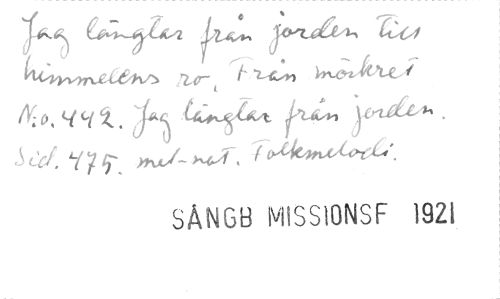 Jag längtar från jorden till
himmelens ro, Från mörkret
N:o. 442. Jag längtar från jorden.
Sid. 475. mel-not. Folkmelodi.
SÅNGB MISSIONSF 1921